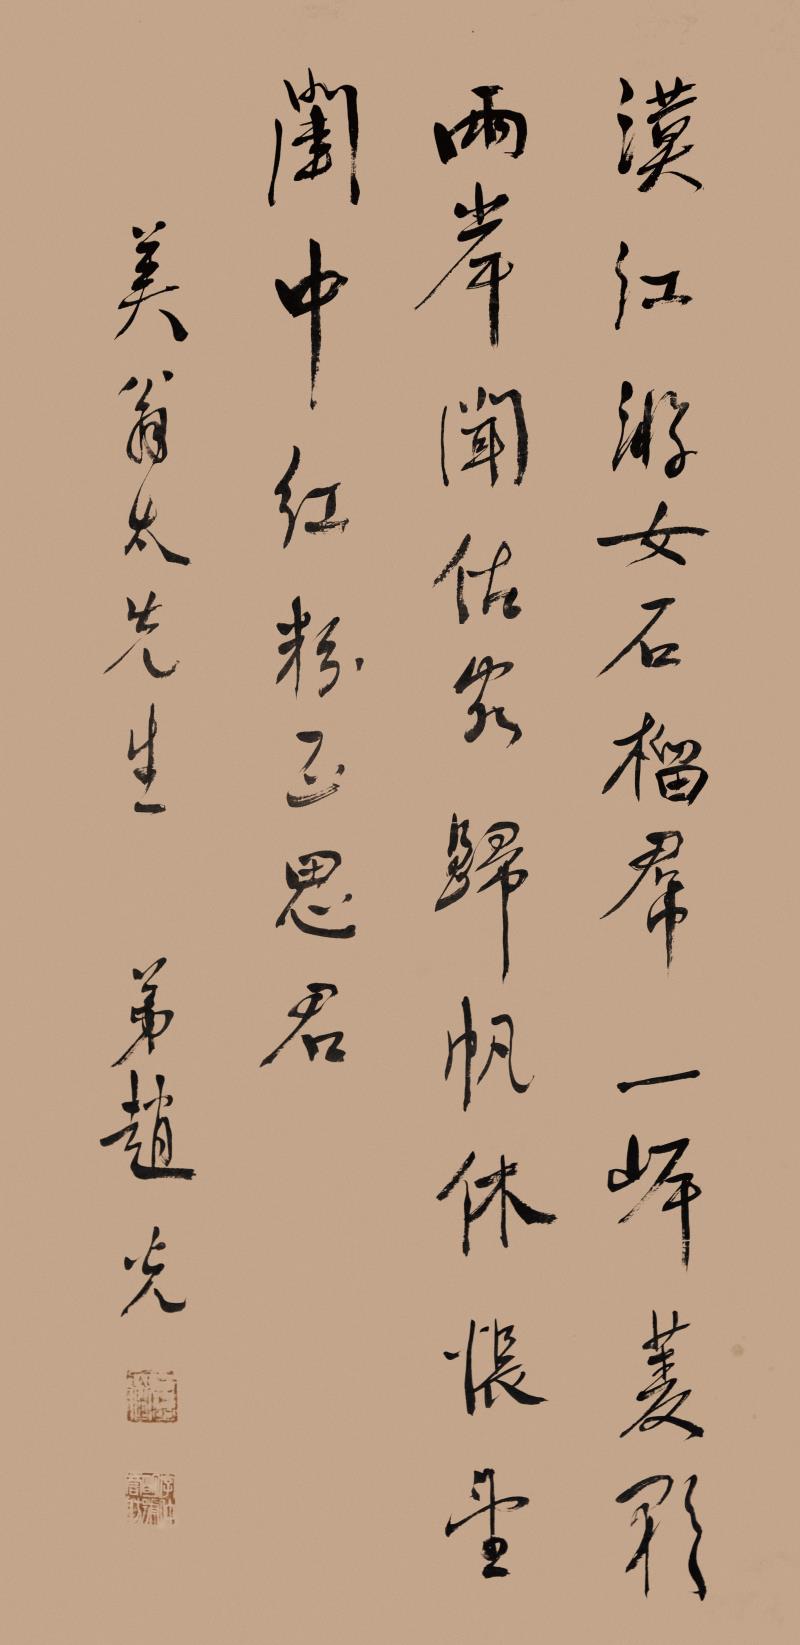 漢江游女石榴帬一㟁菱歌
兩岸聞估客歸帆休悵望
閨中紅粉正思君
美翁太先生 弟趙光